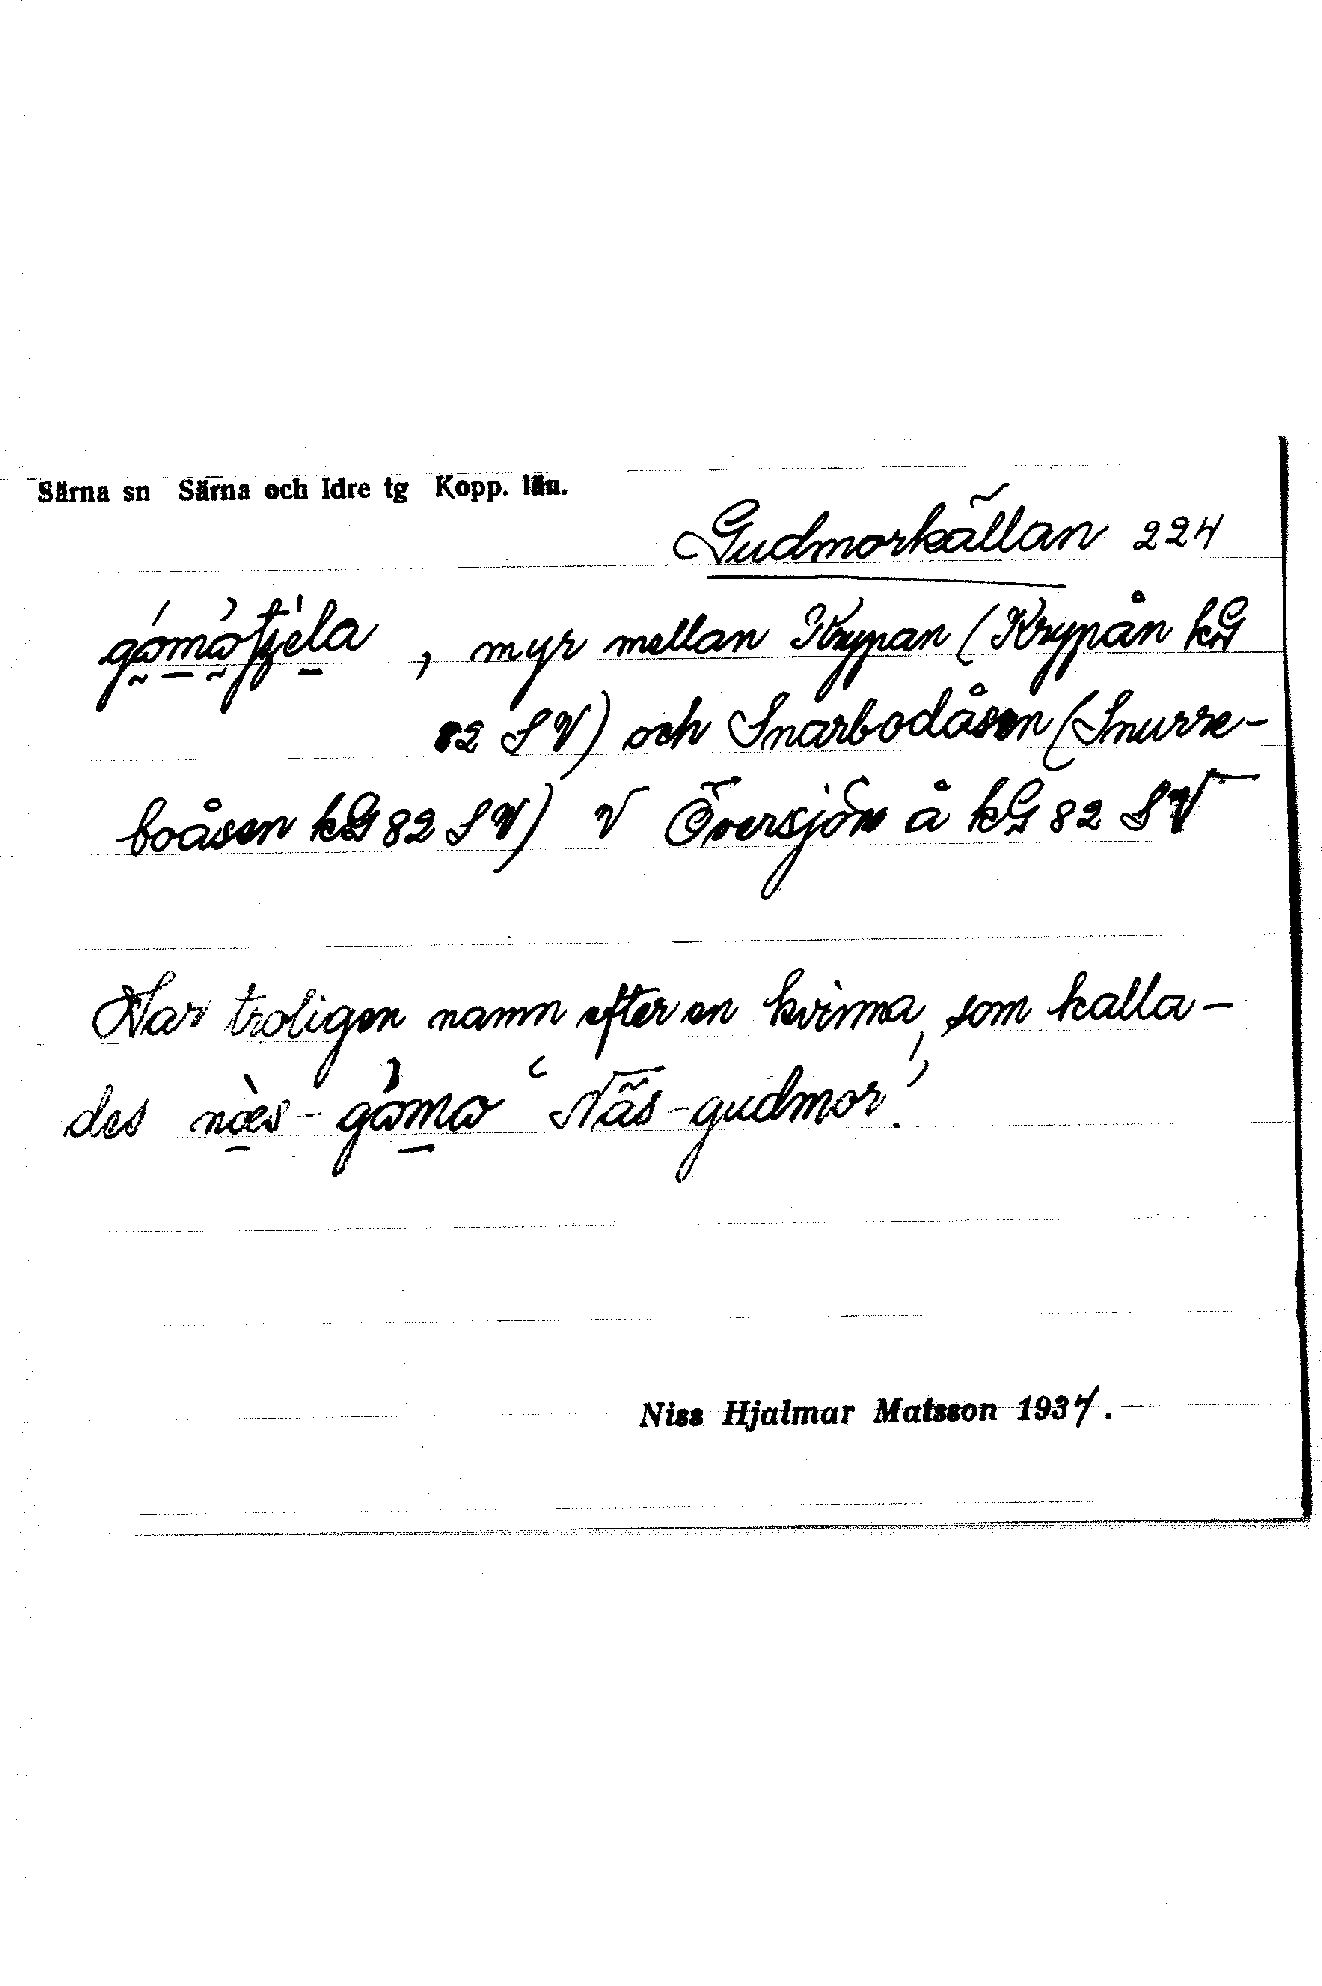 Särna sn Särna och Idre tg Kopp. län.
Gudmorkällan 224
gómòtjela, myr mellan Krypan (Krypån kG
82 SV) och Snarbodåsen (Snurre-
boåsen kG 82 SV) V Översjöns å kG 82 SV
Har troligen namn efter en kvinna, som kalla-
des næ̀s-gòmo ‘Näs-gudmor’.
Niss Hjalmar Matsson 1934.